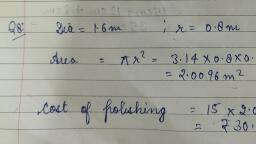 Q8: Dia = 1.6m ; r = 0.8m
Area = πr² = 3.14×0.8×0.
= 2.0096m²
Cost of polishing = 15 × 2.0
= ₹30.